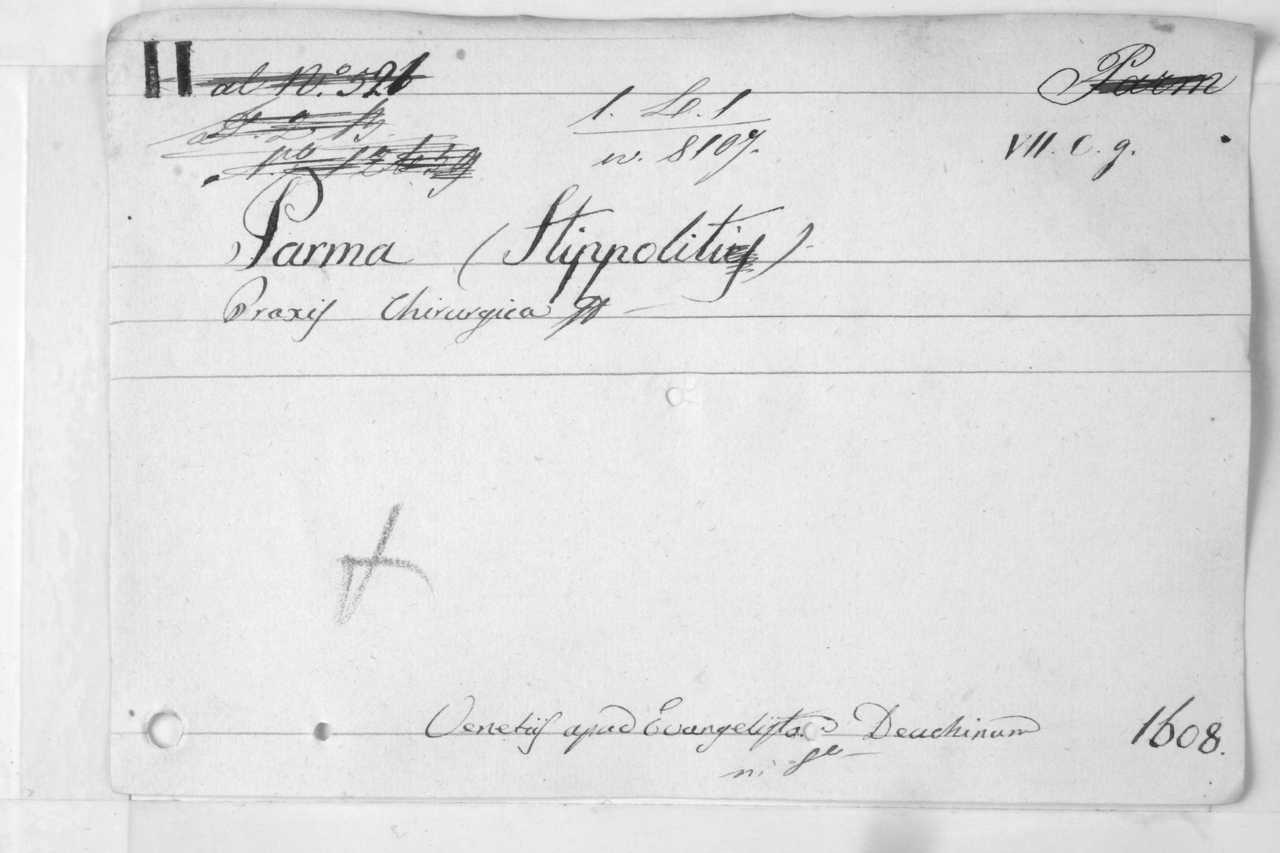 II al N.º 526 Parm
1. L. 1
w. 8107. VII. C. g.
Parma (Hippolitus)
Praxis Chirurgica
Venetiis apud Evangelistam Deuchinum 1608.